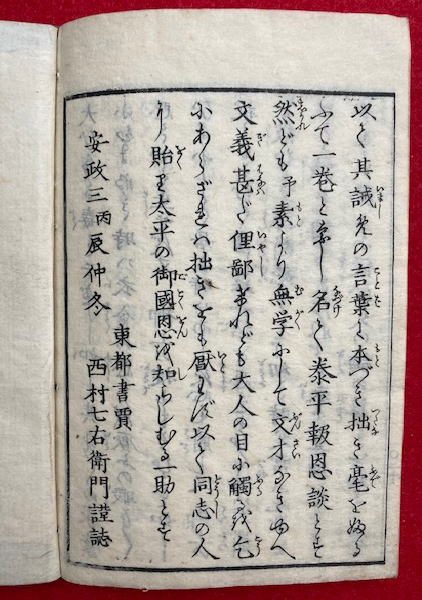 以て其誡めの言葉に本づき拙き毫をふる
ふて一巻となし名て泰平報恩談とす
然ども予素より無学にして文才なきゆへ
文義甚だ俚鄙なれども大人の目に觸を乞
にあらざれば拙きをも厭はず以て同志の人
に貽り太平の御國恩を知らしむる一助とす
安政三丙辰仲冬
東都書賈
西村七右衛門謹誌